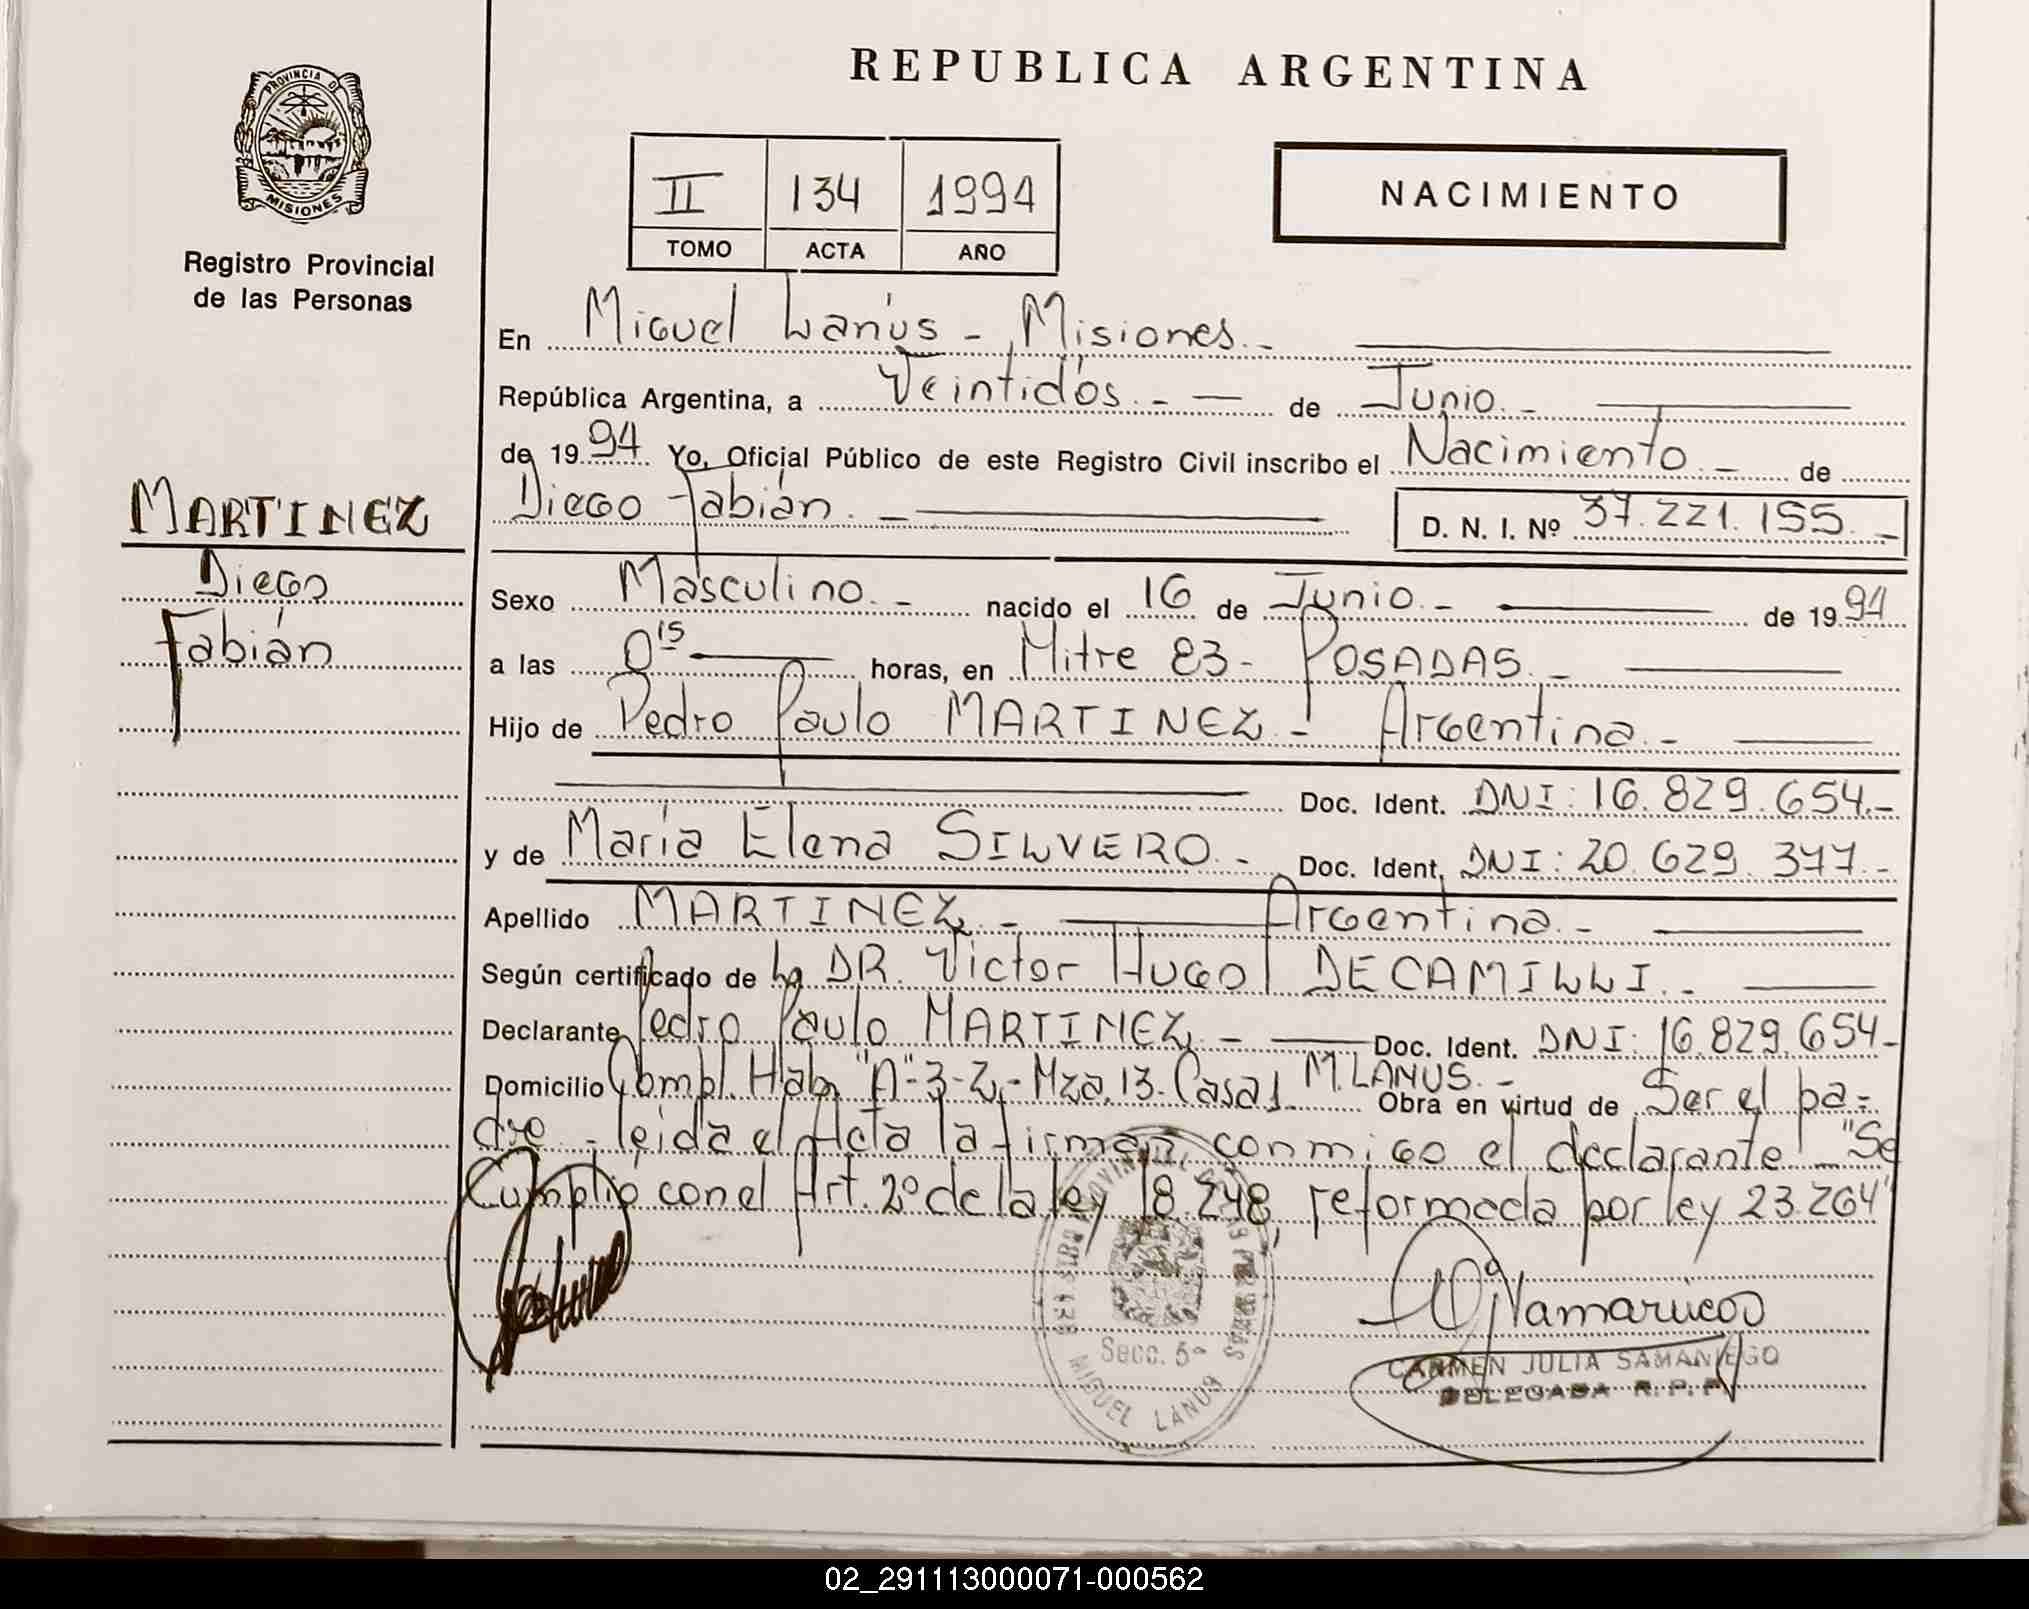 REPUBLICA ARGENTINA
PROVINCIA DE MISIONES
Registro Provincial
de las Personas
II 134 1994
TOMO ACTA AÑO
NACIMIENTO
En Miguel Lanús - Misiones.-
República Argentina, a Veintidós.- - de Junio.-
de 1994 Yo, Oficial Público de este Registro Civil inscribo el Nacimiento.- de
Diego Fabián.- D. N. I. Nº 37.221.155.-
MARTINEZ
Diego
Fabián
Sexo Masculino.- nacido el 16 de Junio.- de 1994
a las 0 15 horas, en Mitre 83- POSADAS.-
Hijo de Pedro Paulo MARTINEZ.- Argentina.-
Doc. Ident. DNI: 16.829.654.-
y de María Elena SILVERO.- Doc. Ident. DNI: 20.629.377.-
Apellido MARTINEZ.- Argentina.-
Según certificado de DR. Victor Hugo DECAMILLI.-
Declarante Pedro Paulo MARTINEZ.- Doc. Ident. DNI: 16.829.654-
Domicilio Compl. Hab. "A"-3-2,- Mza. 13. Casa 1 M. LANUS.- Obra en virtud de Ser el pa-
dre.- leida el Acta la firman conmigo el declarante "Se
Cumplió con el Art. 2º de la ley 18.248, reformada por ley 23.264"
REGISTRO PROVINCIAL DE LAS PERSONAS
Secc. 5ª
MIGUEL LANUS
CARMEN JULIA SAMANIEGO
DELEGADA R. P. P.
02_291113000071-000562